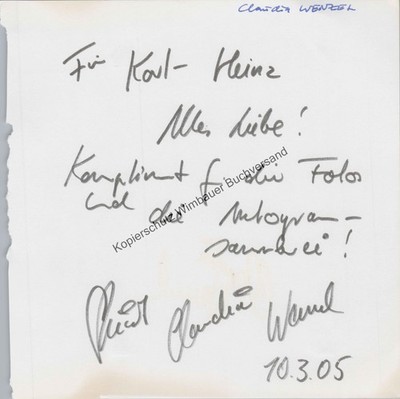 Claudia WENZEL
Für Karl-Heinz
Alles Liebe!
Kompliment f. die Fotos
und die Autogramm-
sammelei!
Claudia Wenzel
10.3.05
Kopierschutz Wimbauer Buchversand